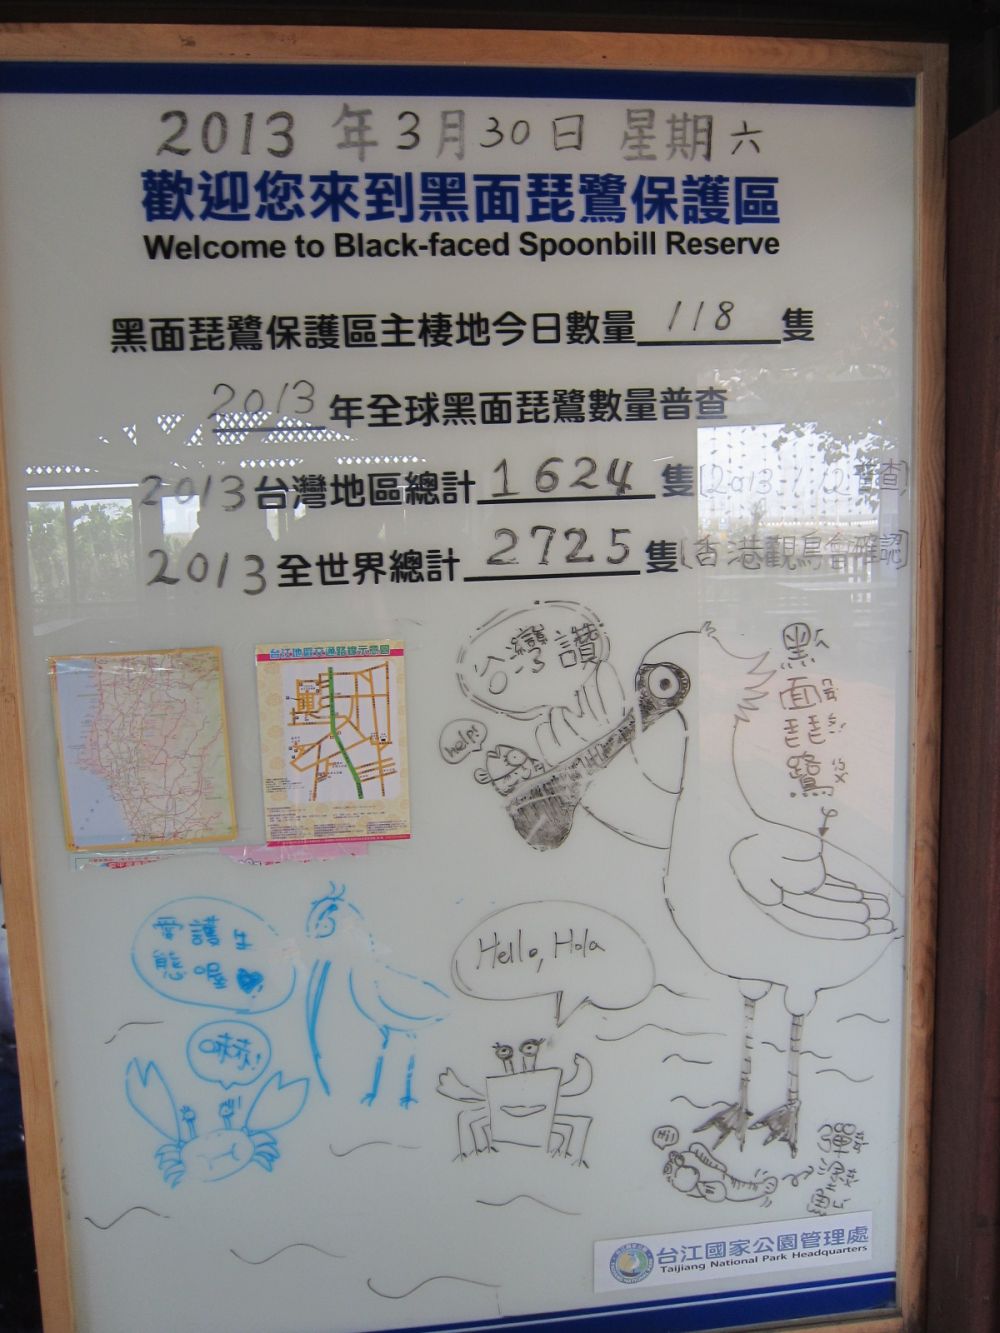 2013 年 3月 30日 星期六
歡迎您來到黑面琵鷺保護區
Welcome to Black-faced Spoonbill Reserve
黑面琵鷺保護區主棲地今日數量 118 隻
2013 年全球黑面琵鷺數量普查
2013 台灣地區總計 1624 隻 (2013.1.12普查)
2013 全世界總計 2725 隻 (香港觀鳥會確認)
台江地區交通路線示意圖
台灣讚
help!
黑面琵鷺
愛護生
態喔
Hello, Hola
Hi!
台江國家公園管理處
Taijiang National Park Headquarters